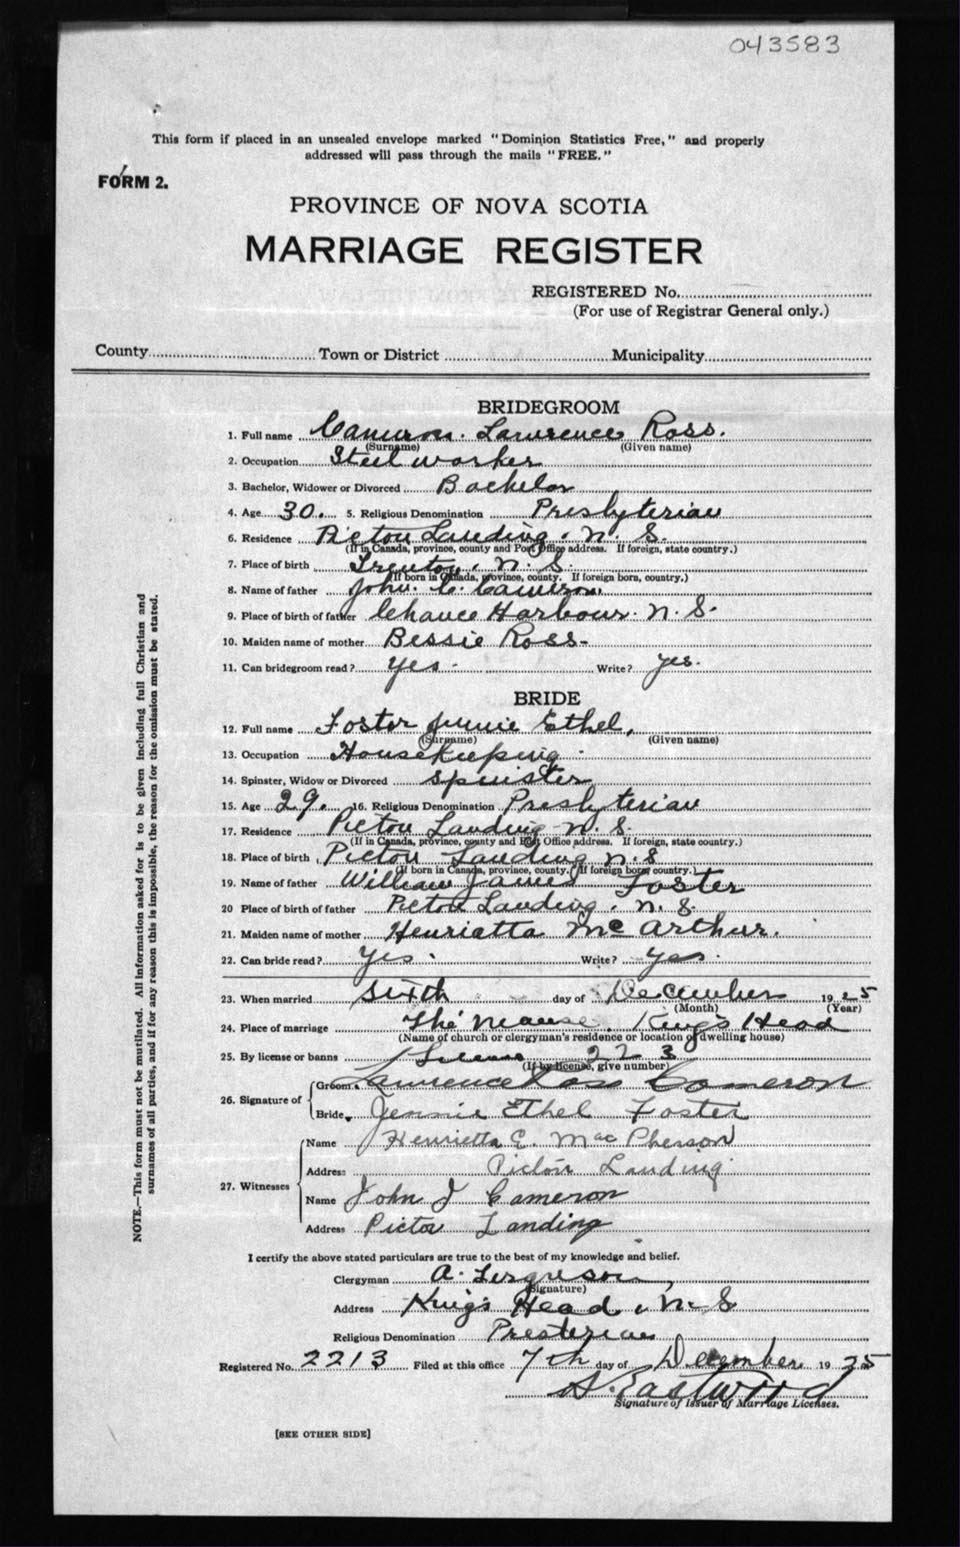 043583
This form if placed in an unsealed envelope marked "Dominion Statistics Free," and properly
addressed will pass through the mails "FREE."
FORM 2.
PROVINCE OF NOVA SCOTIA
MARRIAGE REGISTER
REGISTERED No.
(For use of Registrar General only.)
County Town or District Municipality
BRIDEGROOM
1. Full name Cameron. Lawrence Ross.
(Surname) (Given name)
2. Occupation Steel worker
3. Bachelor, Widower or Divorced Bachelor
4. Age 30. 5. Religious Denomination Presbyterian
6. Residence Pictou Landing. N. S.
(If in Canada, province, county and Post Office address. If foreign, state country.)
7. Place of birth Trenton. N. S.
(If born in Canada, province, county. If foreign born, country.)
8. Name of father John. C. Cameron.
9. Place of birth of father Chance Harbour. N. S.
10. Maiden name of mother Bessie Ross-
11. Can bridegroom read? yes. Write? yes.
BRIDE
12. Full name Foster Jennie Ethel,
(Surname) (Given name)
13. Occupation Housekeeping
14. Spinster, Widow or Divorced Spinster
15. Age 29. 16. Religious Denomination Presbyterian
17. Residence Pictou Landing N. S.
(If in Canada, province, county and Post Office address. If foreign, state country.)
18. Place of birth Pictou Landing N. S
(If born in Canada, province, county. If foreign born, country.)
19. Name of father William James Foster
20 Place of birth of father Pictou Landing. N. S.
21. Maiden name of mother Henrietta McArthur.
22. Can bride read? Yes. Write? Yes.
23. When married Sixth day of December 1925
(Month) (Year)
24. Place of marriage The Manse. King's Head
(Name of church or clergyman's residence or location of dwelling house)
25. By license or banns License 22 3
(If by license, give number)
26. Signature of Groom Lawrence Ross Cameron
Bride Jennie Ethel Foster
27. Witnesses Name Henrietta E. MacPherson
Address Pictou Landing
Name John J Cameron
Address Pictou Landing
I certify the above stated particulars are true to the best of my knowledge and belief.
Clergyman A. Ferguson,
(Signature)
Address King's Head, N. S
Religious Denomination Presterian
Registered No. 2213 Filed at this office 7th day of December 1925
A. Eastwood
Signature of Issuer of Marriage Licenses.
[SEE OTHER SIDE]
NOTE.—This form must not be mutilated. All information asked for is to be given including full Christian and
surnames of all parties, and if for any reason this is impossible, the reason for the omission must be stated.